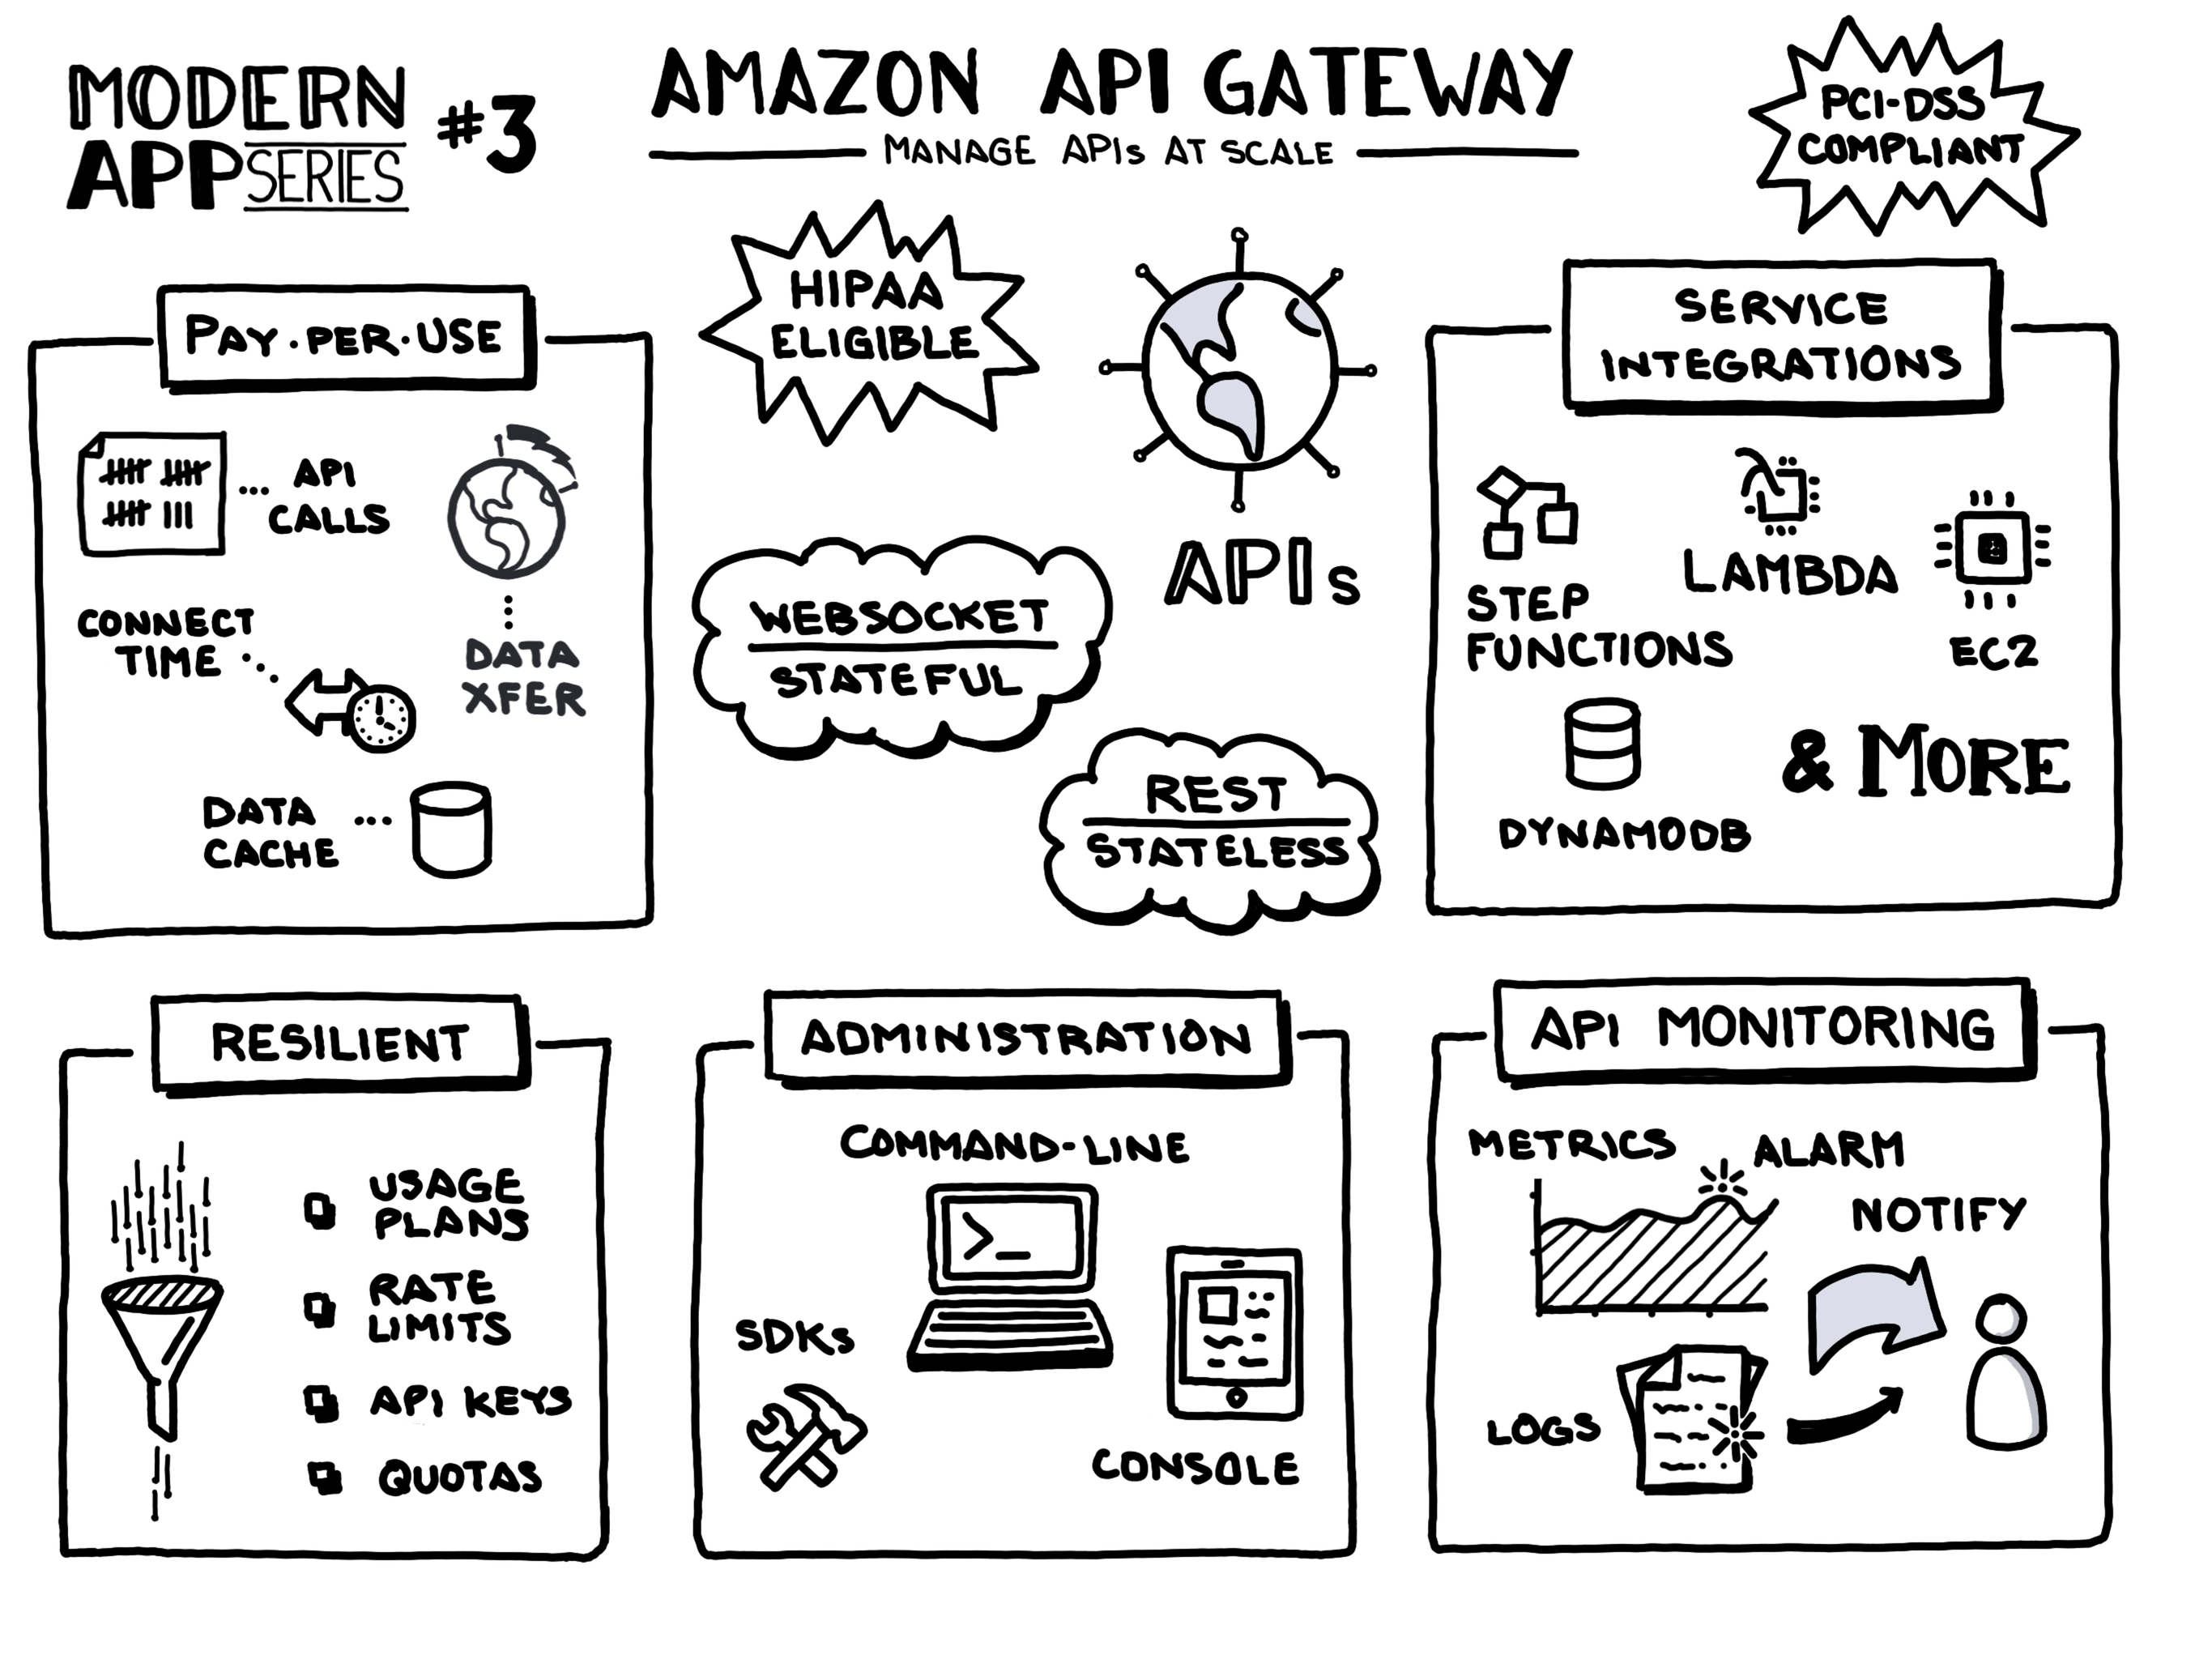 MODERN
APP SERIES
#3
AMAZON API GATEWAY
MANAGE APIs AT SCALE
PCI-DSS
COMPLIANT
HIPAA
ELIGIBLE
PAY·PER·USE
API
CALLS
CONNECT
TIME
DATA
XFER
DATA
CACHE
APIs
WEBSOCKET
STATEFUL
REST
STATELESS
SERVICE
INTEGRATIONS
STEP
FUNCTIONS
LAMBDA
EC2
DYNAMODB
& MORE
RESILIENT
USAGE
PLANS
RATE
LIMITS
API KEYS
QUOTAS
ADMINISTRATION
COMMAND-LINE
>_
SDKs
CONSOLE
API MONITORING
METRICS
ALARM
NOTIFY
LOGS